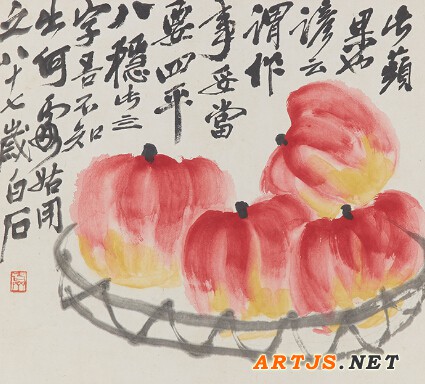 此蘋
果也
諺云
謂作
事妥當
要四平
八穩此三
字吾不知
出何處姑用
之八十七歲白石
ARTJS.NET